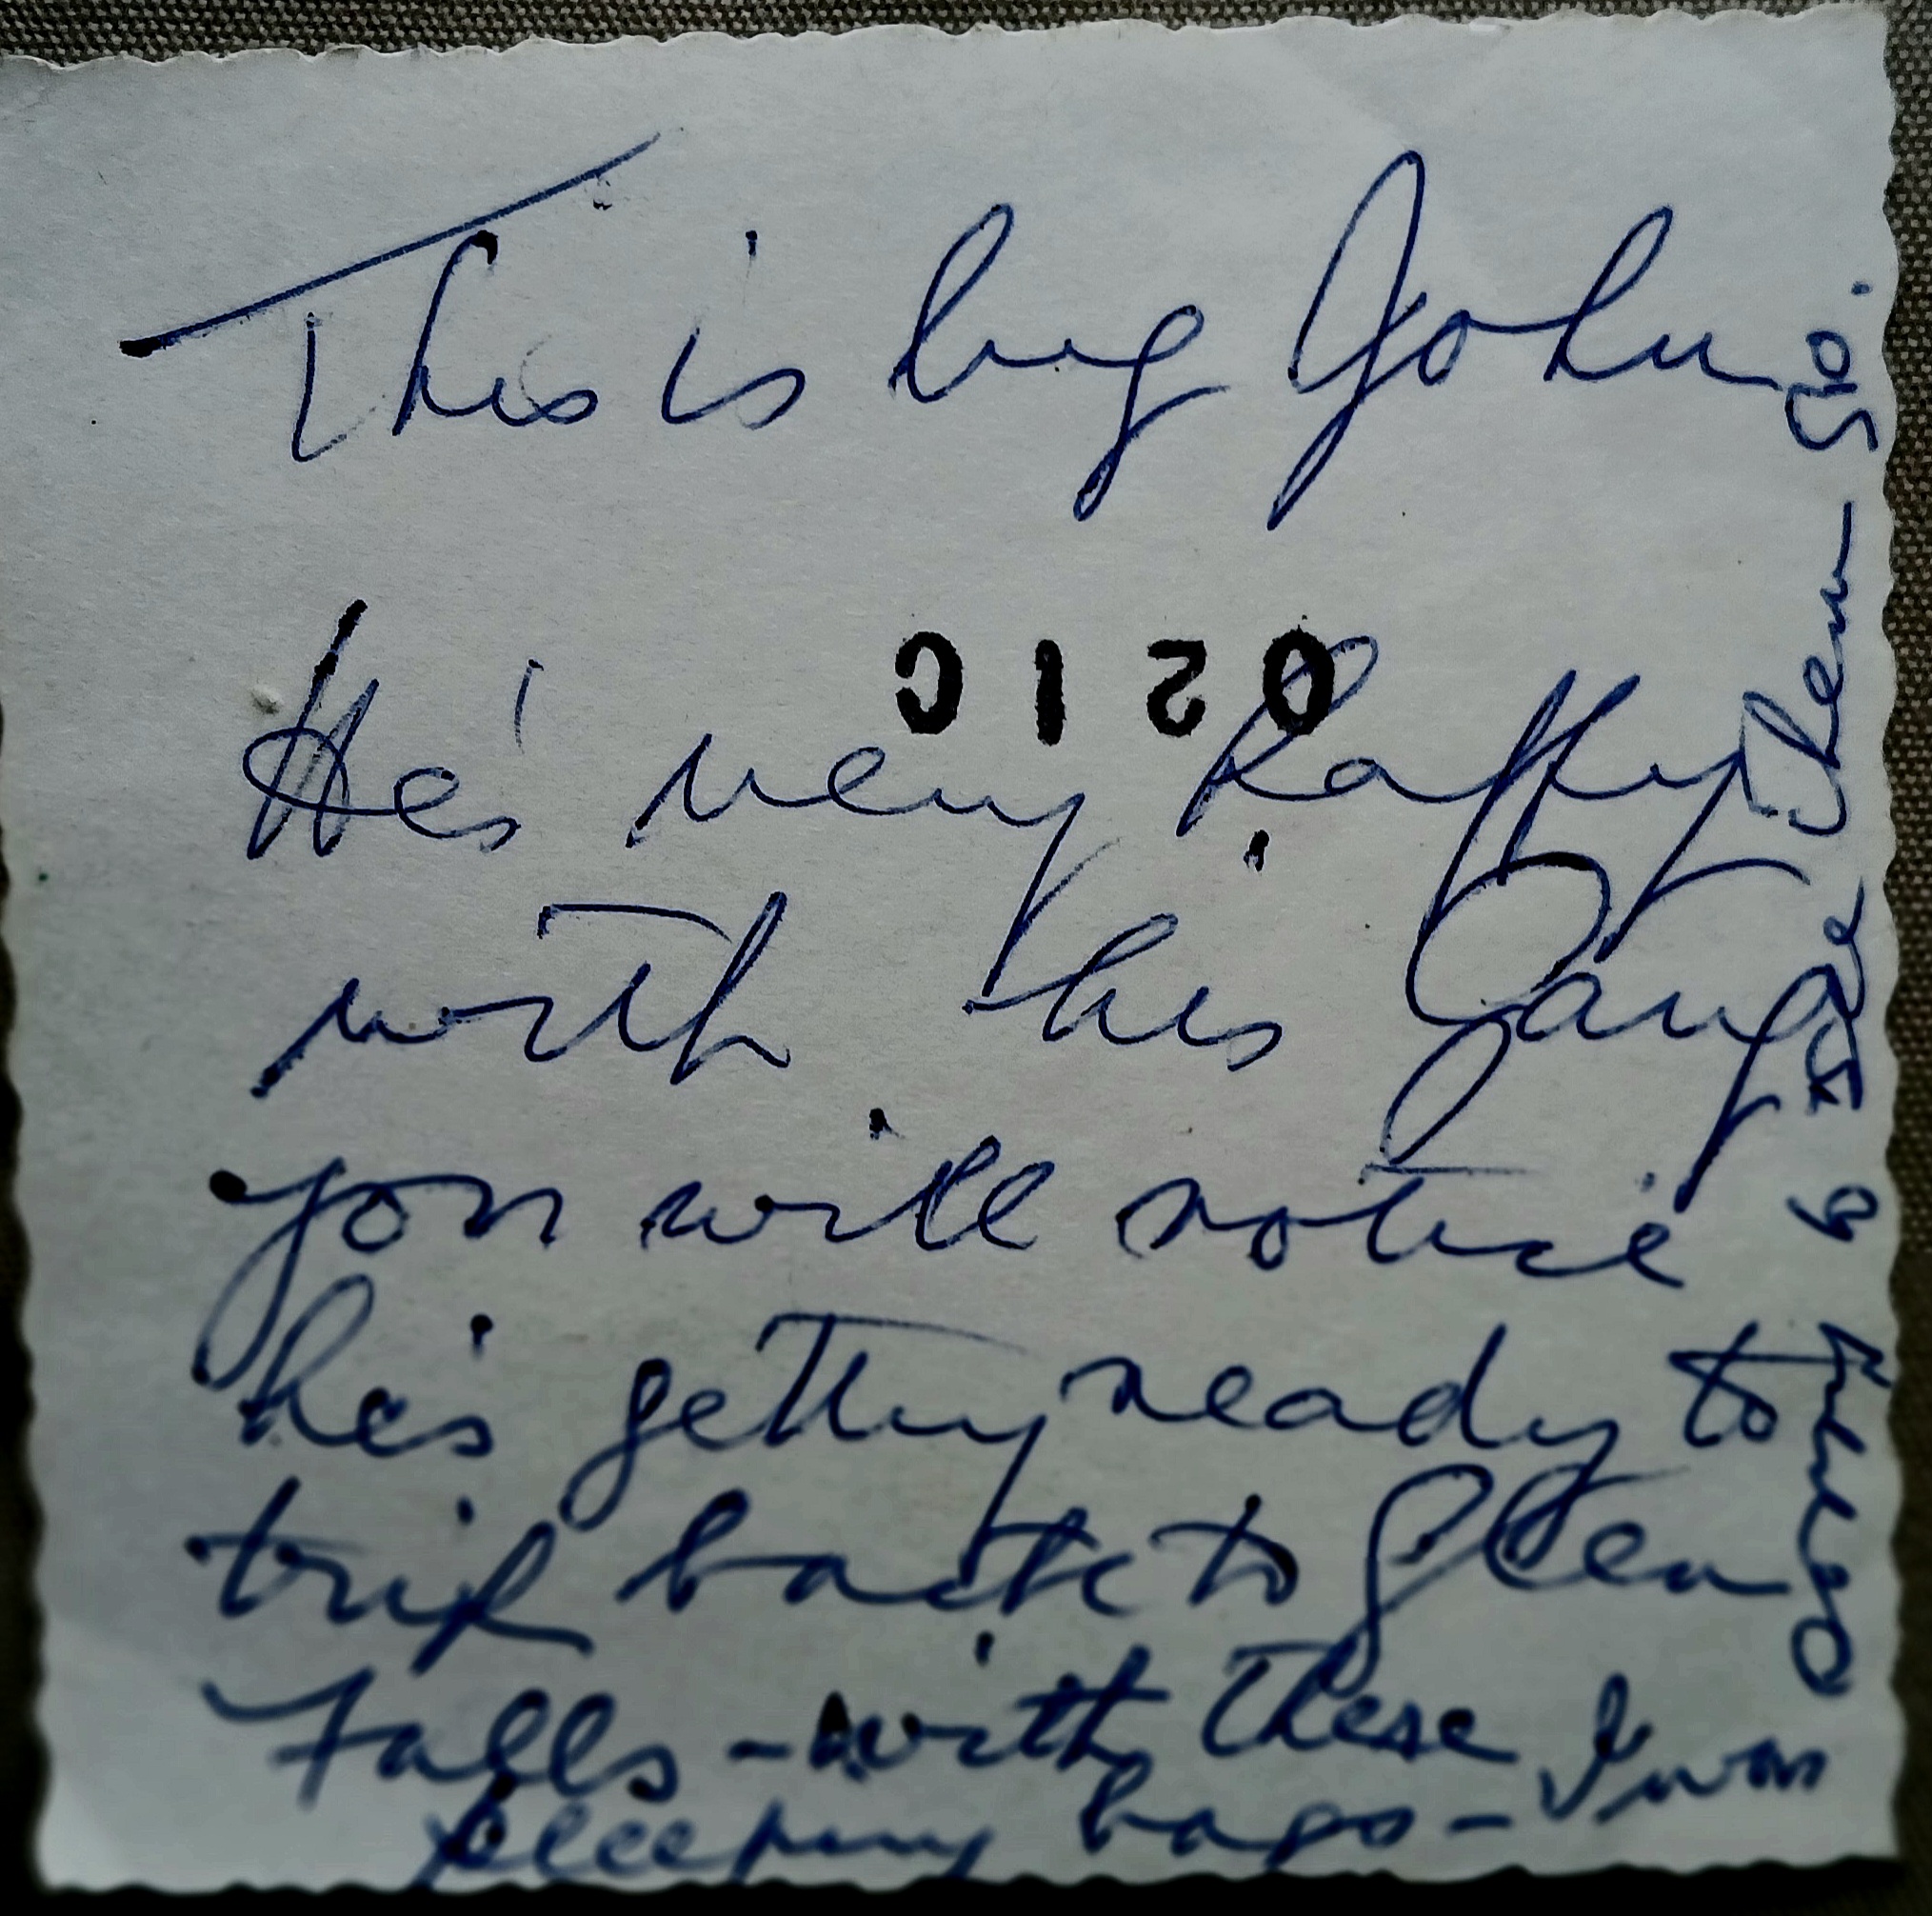 This is big John
021C
He's very happy
with his Gang
you will notice
he's getting ready to
trip back to Glen
Falls - with these
sleeping bags - I was
them go.